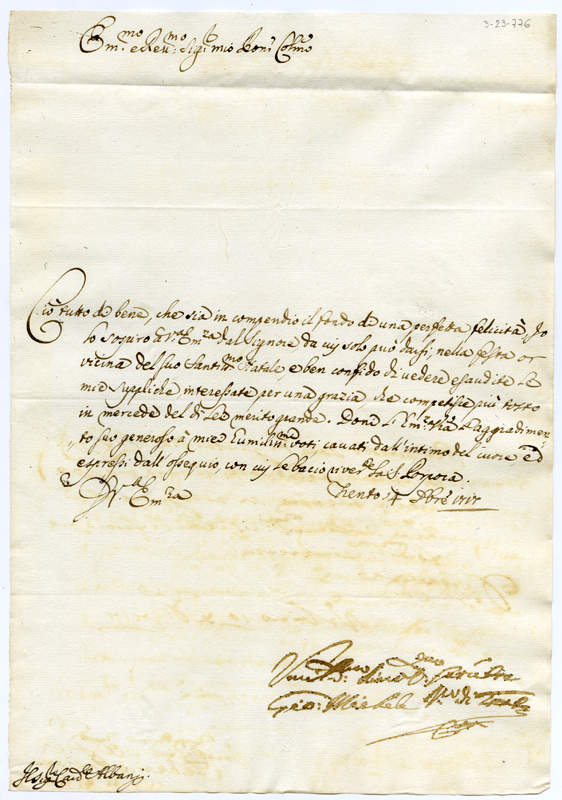 3-23-776
Em.mo e Reu.mo Sig.r mio Pron. Colmo
Ciò tutto di bene, che sia in compendio il fondo di una perfetta felicità, Jo
lo sospiro à V.ra Em.za dal Signore da cuj solo può darsi, nella festa or
vicina del suo Santis.mo Natale, e ben confido di vedere esaudite le
mie suppliche interessate per una grazia che competisce più tosto
in mercede del di Lei merito grande. Doni l'Em.za l'aggradimen-
to suo generoso à miei humiliss.mi voti cavati dall'intimo del cuore ed
espressi dall'ossequio, con cuj le bacio river.te la S. Porpora.
D. V.a Em.za
Trento 4 Xbre 1717
Gio: Michele V.vo di Trento
Sig. Card.le Albani